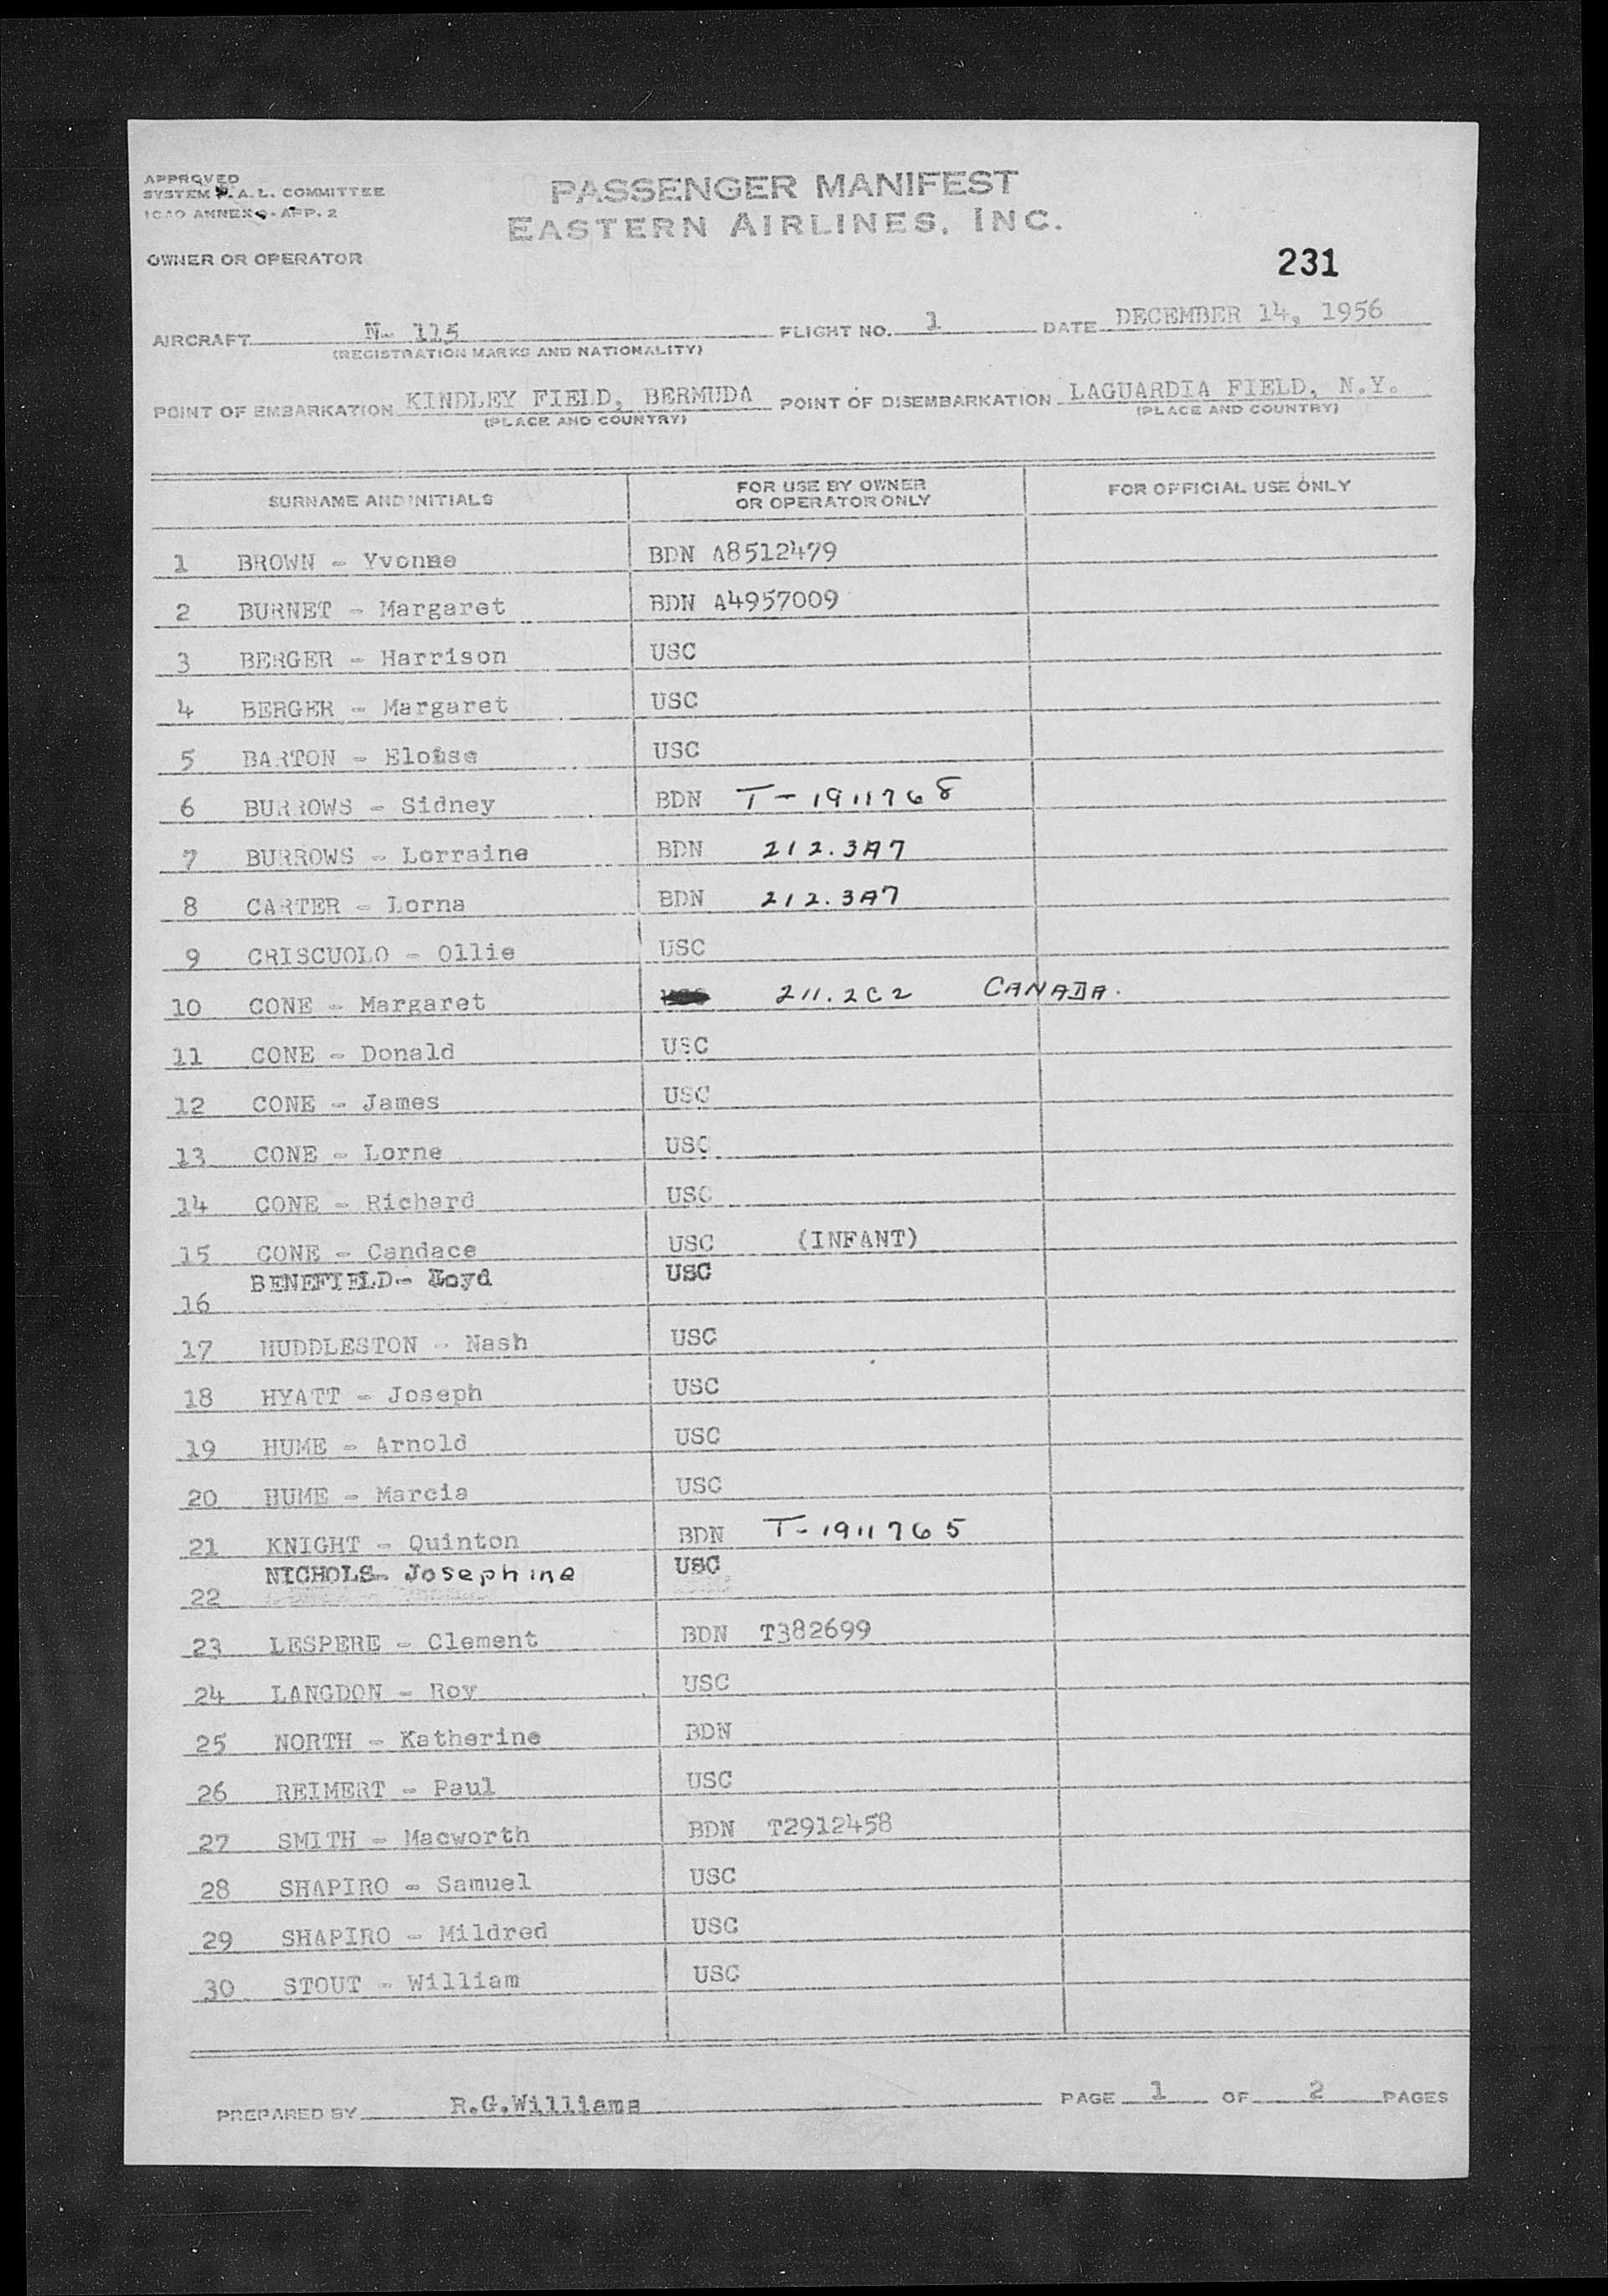 APPROVED
SYSTEM F.A.L. COMMITTEE
ICAO ANNEX 9-APP. 2
PASSENGER MANIFEST
EASTERN AIRLINES, INC.
OWNER OR OPERATOR
231
AIRCRAFT N- 115 FLIGHT NO. 1 DATE DECEMBER 14, 1956
(REGISTRATION MARKS AND NATIONALITY)
POINT OF EMBARKATION KINDLEY FIELD, BERMUDA POINT OF DISEMBARKATION LAGUARDIA FIELD, N.Y.
(PLACE AND COUNTRY) (PLACE AND COUNTRY)
SURNAME AND INITIALS FOR USE BY OWNER OR OPERATOR ONLY FOR OFFICIAL USE ONLY
1 BROWN - Yvonne BDN A8512479
2 BURNET - Margaret BDN A4957009
3 BERGER - Harrison USC
4 BERGER - Margaret USC
5 BARTON - Eloise USC
6 BURROWS - Sidney BDN T-1911768
7 BURROWS - Lorraine BDN 212.3A7
8 CARTER - Lorna BDN 212.3A7
9 CRISCUOLO - Ollie USC
10 CONE - Margaret 211.2C2 CANADA.
11 CONE - Donald USC
12 CONE - James USC
13 CONE - Lorne USC
14 CONE - Richard USC
15 CONE - Candace USC (INFANT)
16 BENEFIELD- Loyd USC
17 HUDDLESTON - Nash USC
18 HYATT - Joseph USC
19 HUME - Arnold USC
20 HUME - Marcia USC
21 KNIGHT - Quinton BDN T-1911765
22 NICHOLS- Josephine USC
23 LESPERE - Clement BDN T382699
24 LANGDON - Roy USC
25 NORTH - Katherine BDN
26 REIMERT - Paul USC
27 SMITH - Macworth BDN T2912458
28 SHAPIRO - Samuel USC
29 SHAPIRO - Mildred USC
30 STOUT - William USC
PREPARED BY R.G.Williams PAGE 1 OF 2 PAGES